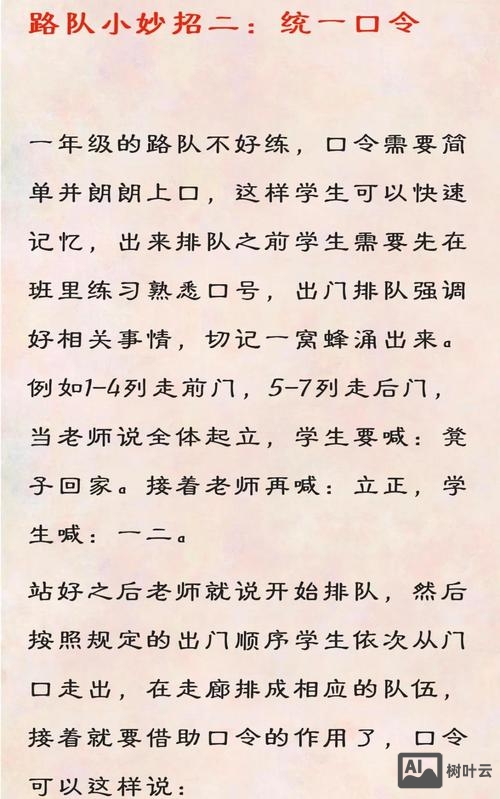 路队小妙招二：统一口令
一年级的路队不好练，口令需要简
单并朗朗上口，这样学生可以快速
记忆，出来排队之前学生需要先在
班里练习熟悉口号，出门排队强调
好相关事情，切记一窝蜂涌出来。
例如1-4列走前门，5-7列走后门，
当老师说全体起立，学生要喊：凳
子回家。接着老师再喊：立正，学
生喊：一二。
站好之后老师就说开始排队，然后
按照规定的出门顺序学生依次从门
口走出，在走廊排成相应的队伍，
接着就要借助口令的作用了，口令
可以这样说：
AI 树叶云